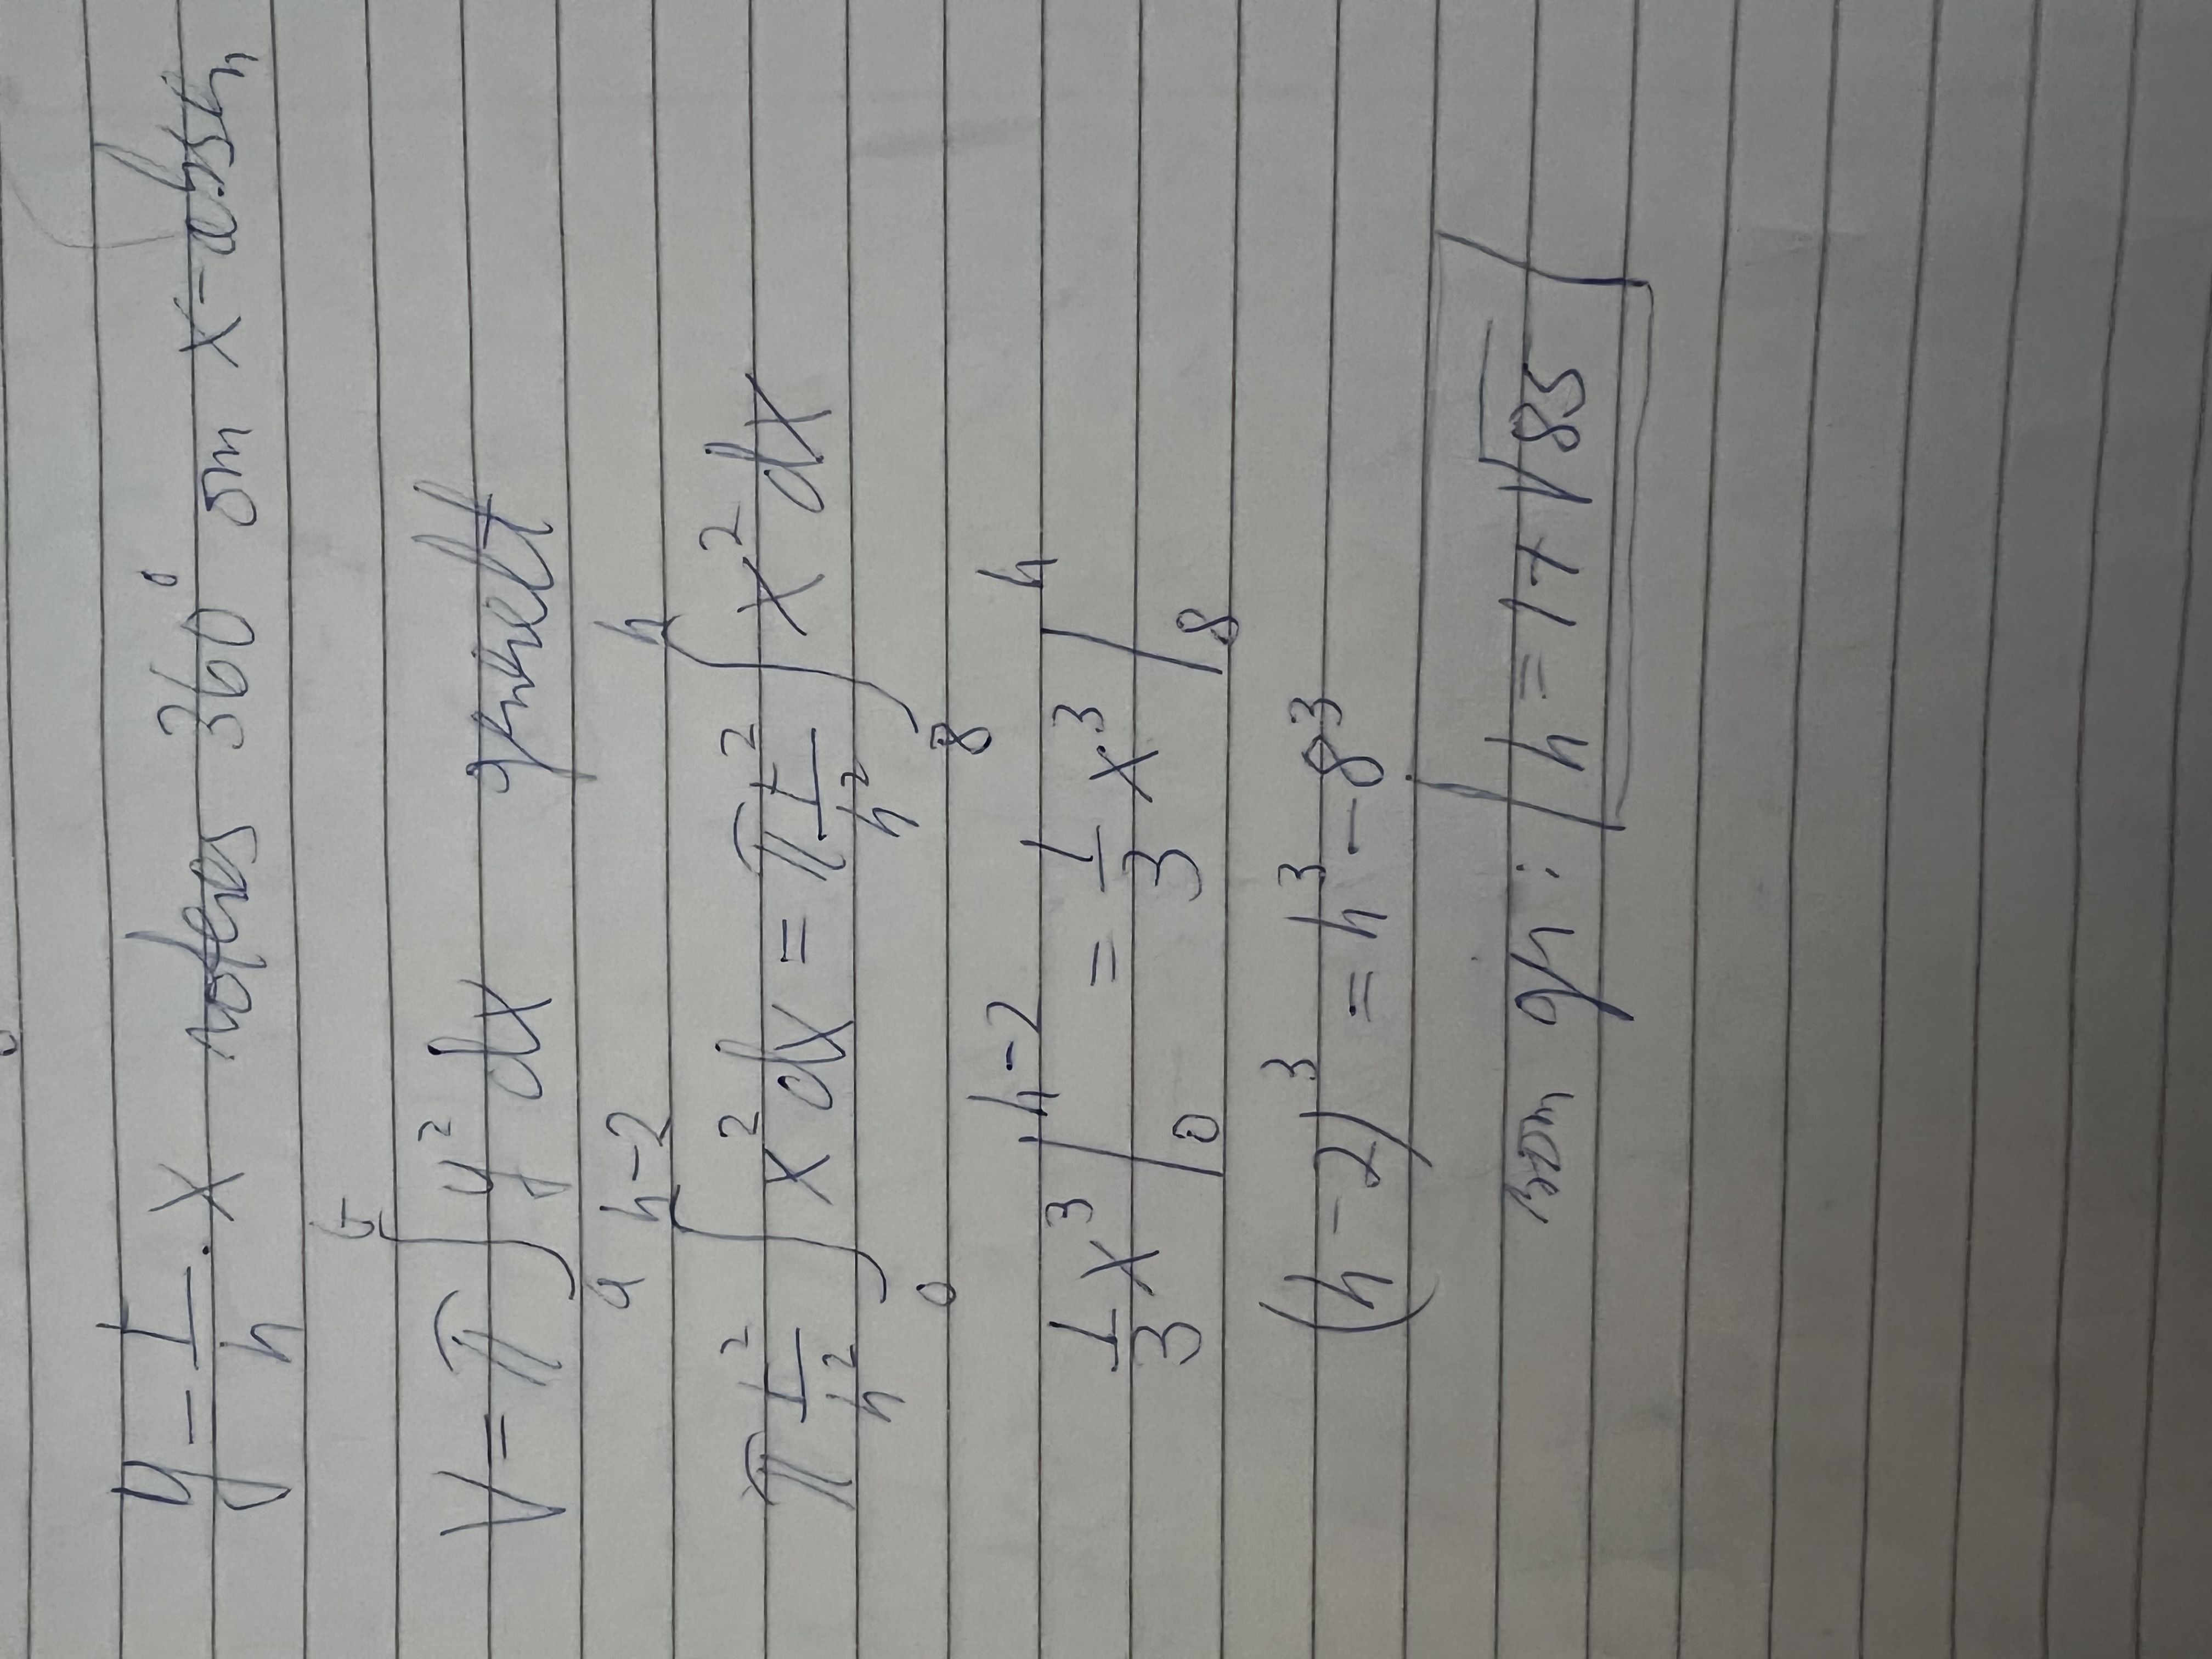 y = r/h · x roteras 360° om x-axeln
V = π ∫_a^b y² dx generellt
π r²/h² ∫_0^{h-2} x² dx = π r²/h² ∫_8^h x² dx
1/3 x³ |_0^{h-2} = 1/3 x³ |_8^h
(h-2)³ = h³ - 8³
som ger: h = 1 + √85